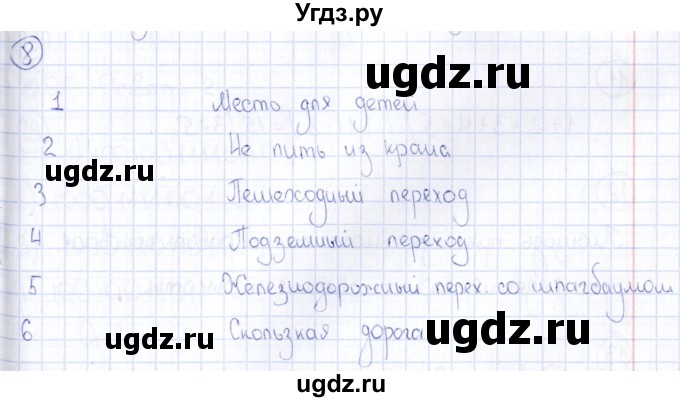 Угдз.ру
8
ugdz.ru
1 Место для детей
ugdz.ru
2 Не пить из крана
ugdz.ru
3 Пешеходный переход
ugdz.ru
4 Подземный переход
5 Железнодорожный перех. со шлагбаумом
ugdz.ru
6 Скользкая дорога
ugdz.ru
ugdz.ru